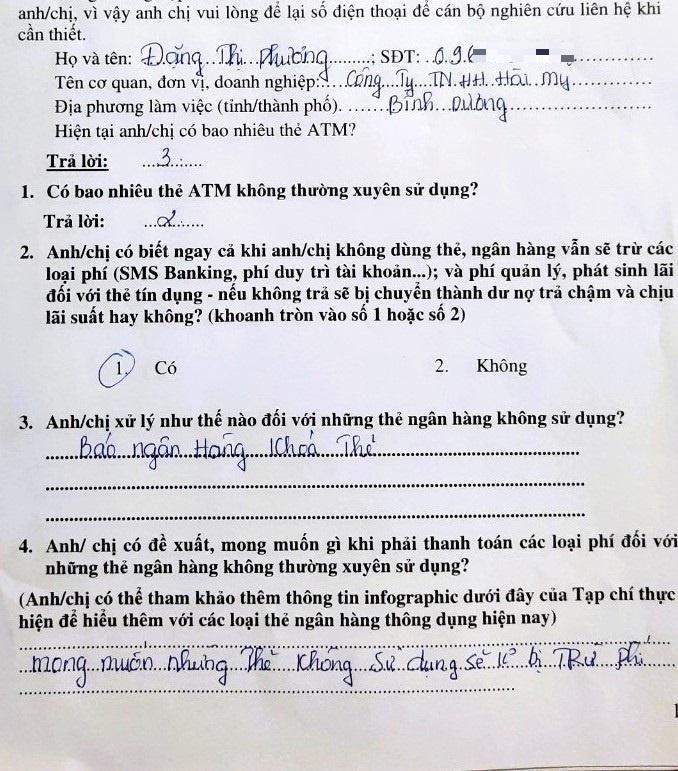 anh/chị, vì vậy anh chị vui lòng để lại số điện thoại để cán bộ nghiên cứu liên hệ khi
cần thiết.
Họ và tên: Đặng Thi Phương; SĐT: 096
Tên cơ quan, đơn vị, doanh nghiệp: Công Ty TNHH Hải My
Địa phương làm việc (tỉnh/thành phố). Bình Dương
Hiện tại anh/chị có bao nhiêu thẻ ATM?
Trả lời: 3
1. Có bao nhiêu thẻ ATM không thường xuyên sử dụng?
Trả lời: 2
2. Anh/chị có biết ngay cả khi anh/chị không dùng thẻ, ngân hàng vẫn sẽ trừ các
loại phí (SMS Banking, phí duy trì tài khoản...); và phí quản lý, phát sinh lãi
đối với thẻ tín dụng - nếu không trả sẽ bị chuyển thành dư nợ trả chậm và chịu
lãi suất hay không? (khoanh tròn vào số 1 hoặc số 2)
1. Có 2. Không
3. Anh/chị xử lý như thế nào đối với những thẻ ngân hàng không sử dụng?
Báo ngân Hàng Khoá Thẻ
4. Anh/ chị có đề xuất, mong muốn gì khi phải thanh toán các loại phí đối với
những thẻ ngân hàng không thường xuyên sử dụng?
(Anh/chị có thể tham khảo thêm thông tin infographic dưới đây của Tạp chí thực
hiện để hiểu thêm với các loại thẻ ngân hàng thông dụng hiện nay)
mong muốn những Thẻ Không Sử dụng sẽ k° bị TRừ Phí